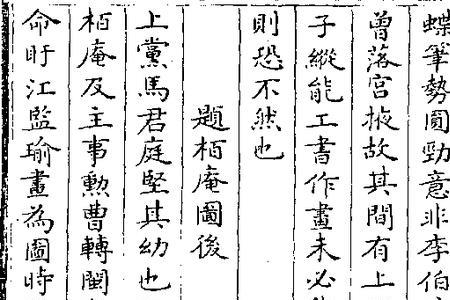 蝶筆勢圓勁意非李伯
曾落宮掖故其間有上
子縱能工書作畫未必
則恐不然也
題栢庵圖後
上黨馬君庭堅其幼也
栢庵及主事勲曹轉閩
命盱江監瑜畫為圖時